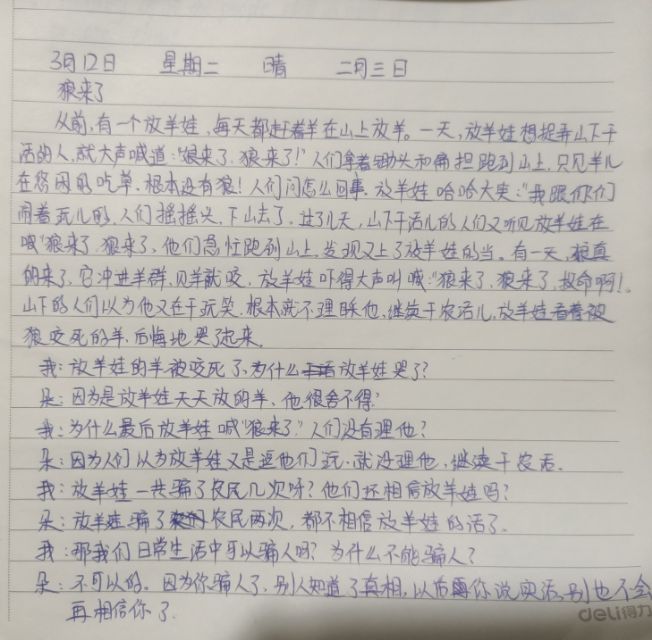 3月12日 星期二 晴 二月三日
狼来了
从前,有一个放羊娃,每天都赶着羊在山上放羊。一天,放羊娃想捉弄山下干
活的人,就大声喊道:“狼来了,狼来了!”人们拿着锄头和扁担跑到山上,只见羊儿
在悠闲的吃草,根本没有狼!人们问怎么回事,放羊娃哈哈大笑:“我跟你们
闹着玩儿的,人们摇摇头,下山去了,过了几天,山下干活儿的人们又听见放羊娃在
喊“狼来了,狼来了,他们急忙跑到山上,发现又上了放羊娃的当。有一天,狼真
的来了,它冲进羊群,见羊就咬,放羊娃吓得大声叫喊:“狼来了,狼来了,救命啊!
山下的人们以为他又在干玩笑,根本就不理睬他,继续干农活儿,放羊娃看着被
狼咬死的羊,后悔地哭了起来。
我:放羊娃的羊被咬死了,为什么放羊娃哭了?
朵:因为是放羊娃天天放的羊,他很舍不得。
我:为什么最后放羊娃喊“狼来了”人们没有理他?
朵:因为人们以为放羊娃又是逗他们玩,就没理他,继续干农活。
我:放羊娃一共骗了农民几次呀?他们还相信放羊娃吗?
朵:放羊娃骗了农民两次,都不相信放羊娃的话了。
我:那我们日常生活中可以骗人吗?为什么不能骗人?
朵:不可以的。因为你骗人了,别人知道了真相,以后再你说实话,别也不会
再相信你了。
deli得力